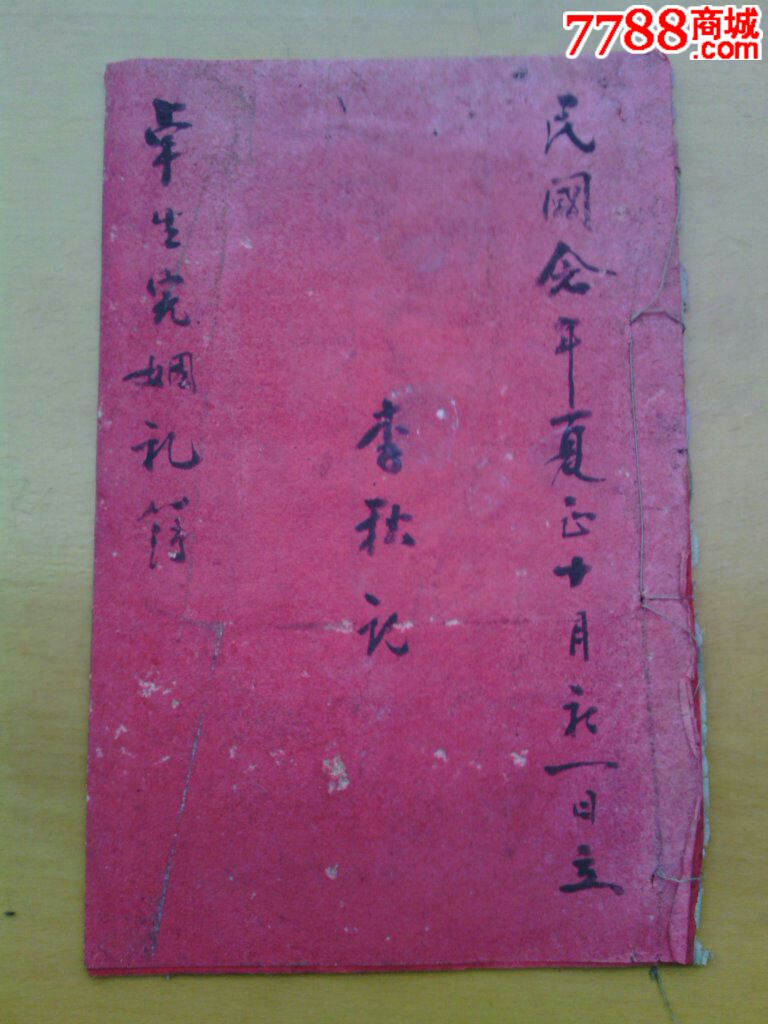 7788商城
.com
民國念年夏正十月初一日立
李秋記
生完姻礼簿